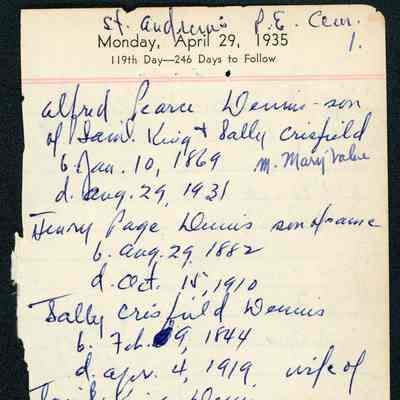 St. Andrew's P.E. Cem.
1.
Monday, April 29, 1935
119th Day—246 Days to Follow
Alfred Pearce Dennis - son
of Saml. King & Sally Crisfield
b. Jan. 10, 1869 m. Mary Value
d. Aug. 29, 1931
Henry Page Dennis son of same
b. Aug. 29 1882
d. Oct. 15, 1910
Sally Crisfield Dennis
b. Feb. 9, 1844
d. Apr. 4, 1919 wife of
King Dennis